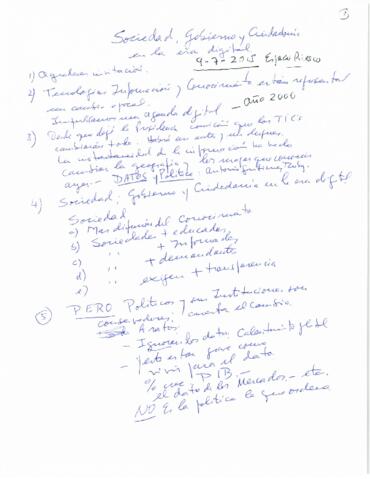 Sociedad, Gobierno y Ciudadanía
en la era digital
9-7-2015 Espacio Riesco
1) Agradecer invitación.
2) Tecnologías Información y Conocimiento están
en cambio
una agenda digital _ año 2000
3) Desde que dejé la Presidencia que las TICs
cambiarían todo. Habrá un antes y un después.
La instantaneidad de la información ha hecho
cambiar la geografía y los mapas que conocían
ayer. - DATOS y Política -
4) Sociedad, Gobierno y Ciudadanía en la era digital
Sociedad
a) Mas difusión del Conocimiento
b) Sociedades + educadas
c) " + Informadas
d) " + demandante
e) " exigen + transparencia
5) PERO Políticos y sus Instituciones son
conservadores, cuesta el cambio
A ratos
- Ignoran los datos, Calentamiento global
- pero están
vivir para el dato
% PIB. -
el dato de los Mercados - etc.
NO Es la política la que ordena